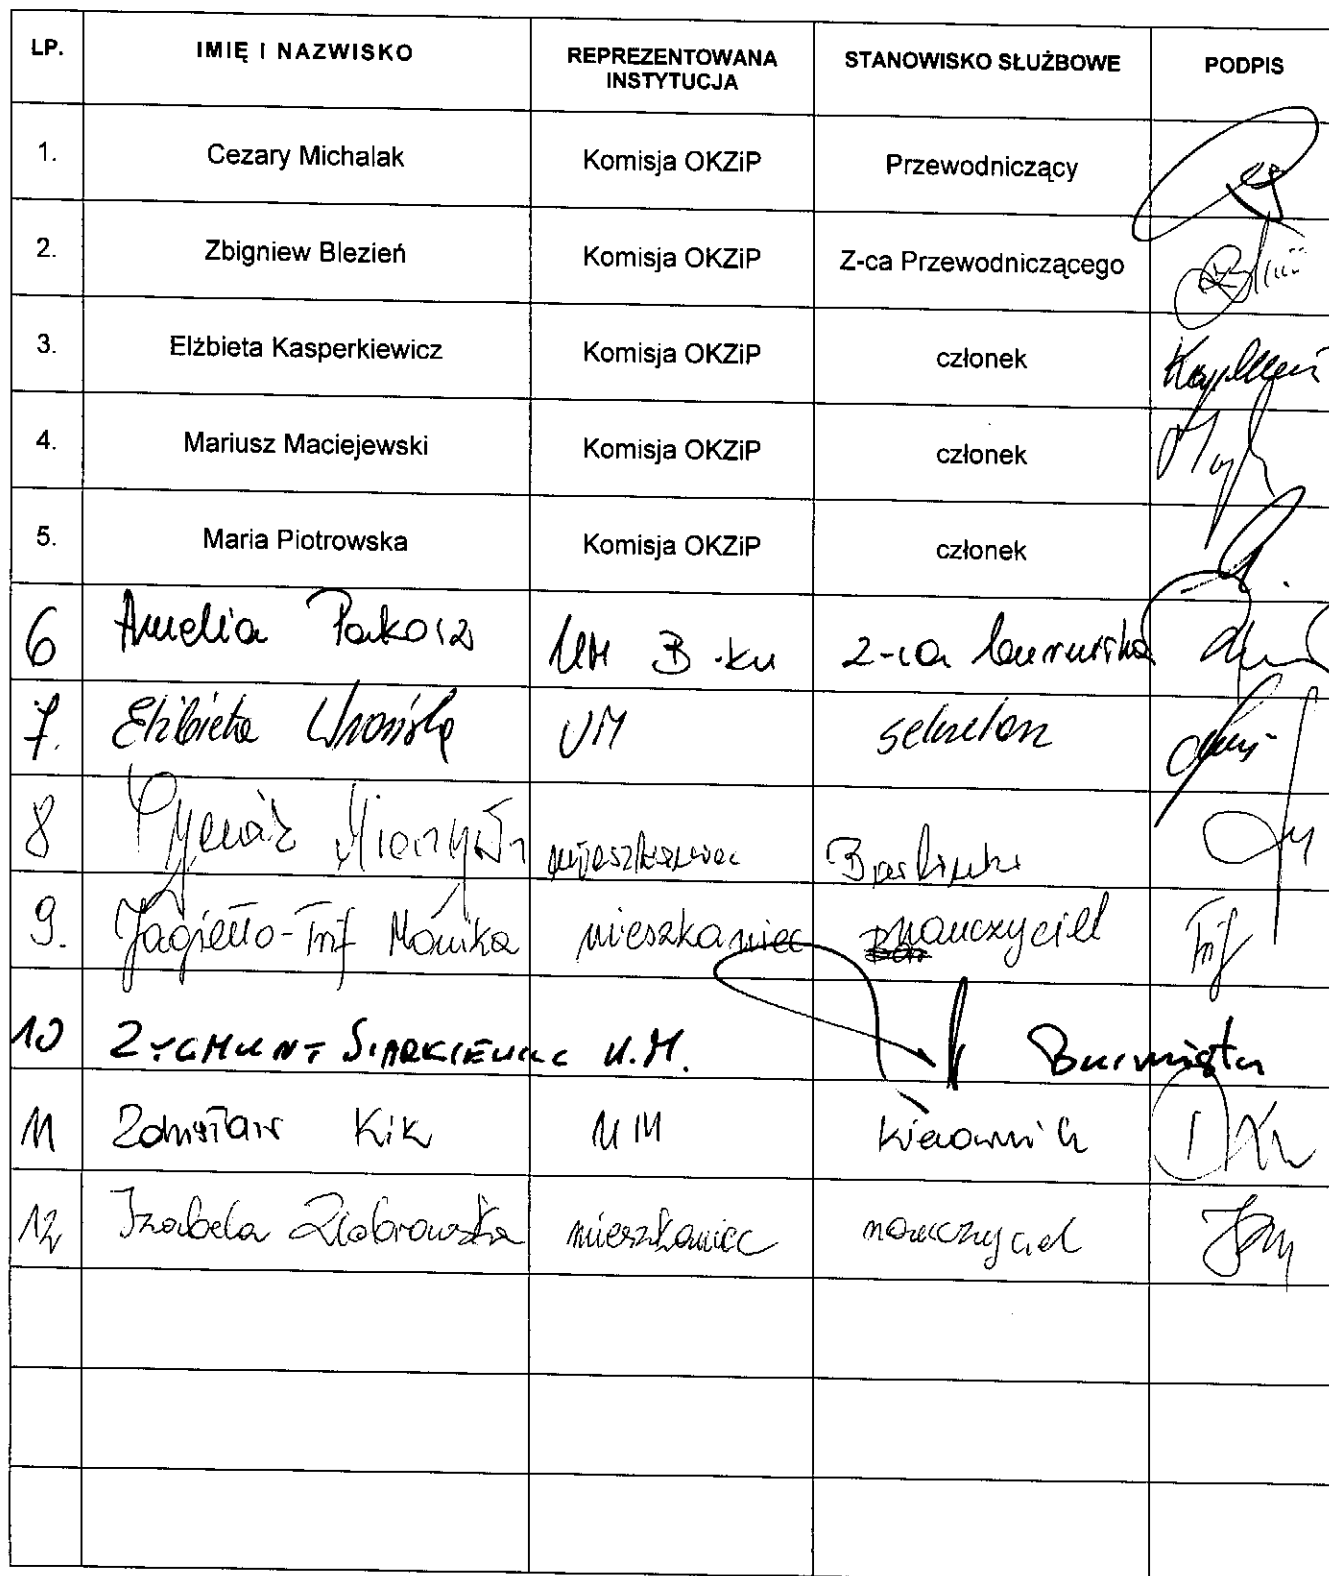 LP. IMIĘ I NAZWISKO REPREZENTOWANA INSTYTUCJA STANOWISKO SŁUŻBOWE PODPIS
1. Cezary Michalak Komisja OKZiP Przewodniczący
2. Zbigniew Blezień Komisja OKZiP Z-ca Przewodniczącego
3. Elżbieta Kasperkiewicz Komisja OKZiP członek
4. Mariusz Maciejewski Komisja OKZiP członek
5. Maria Piotrowska Komisja OKZiP członek
6 Amelia Pakosz UM B-ku Z-ca burmistrza
7. Elżbieta Wrońska UM sekretarz
8 mieszkaniec
9. Jagiełło-Trif Monika mieszkaniec nauczyciel Trif
10 ZYGMUNT SIARKIEWICZ U.M. Burmistrz
11 Zdzisław Kik UM kierownik
12 Izabela Ziobrowska mieszkaniec nauczyciel